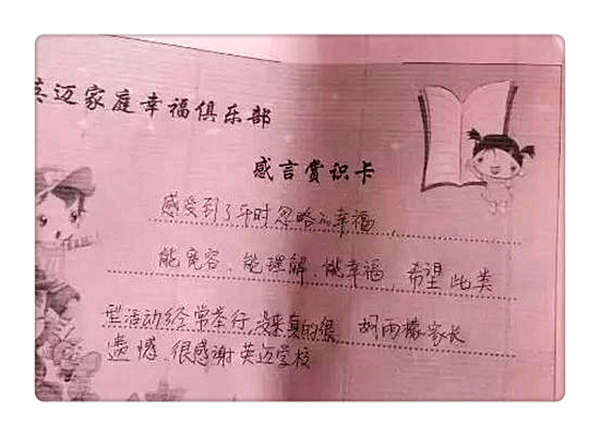 英迈家庭幸福俱乐部
感言赏识卡
感受到了平时忽略的幸福,
能宽容、能理解、能幸福,希望此类
型活动经常举行,没来真的很 胡雨檬家长
遗憾、很感谢英迈学校